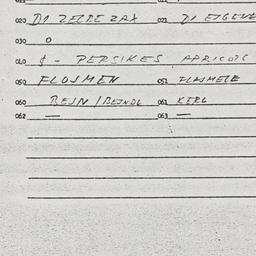 020 DI ZELBE ZAX 021 DI EIGENE
030 O
040 $ - PERSIKES APRICOTS
050 FLOJMEN 051 FLAJMELE
060 BEJN / BEJNDL 061 KERL
062 — 063 —